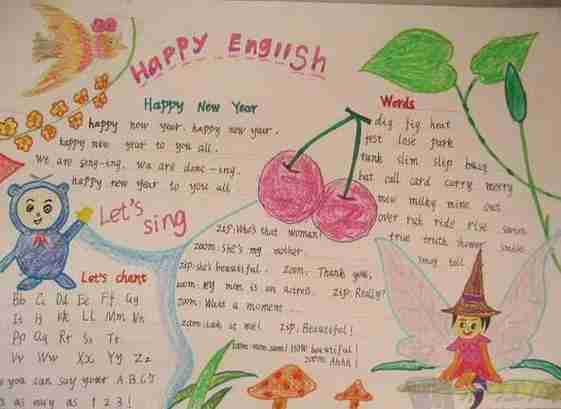 HAPPY ENGlISH
Happy New Year
happy new year. happy new year.
happy new year to you all.
we are sing-ing. we are danc-ing.
happy new year to you all
Let's
sing
Let's chant
Bb Cc Dd Ee Ff Gg
Ii Jj Kk LL Mm Nn
Pp Qq Rr Ss Tt
Vv Ww Xx Yy Zz
you can say your A.B.C's
as easy as 1 2 3!
Words
dig fig heat
lose park
slim slip busy
bat call card carry merry
mew milky mine
over rich ride rise swim
true truth smile
tall
zip: Who's that woman?
zoom: She's my mother.
zip: she's beautiful. zoom: Thank you,
zoom: my mom is an actress. zip: Really?
zoom: Wait a moment ...
zoom: Look at me! zip: Beautiful!
zoom: mom, mom! How beautiful!
zoom: Ahhh!